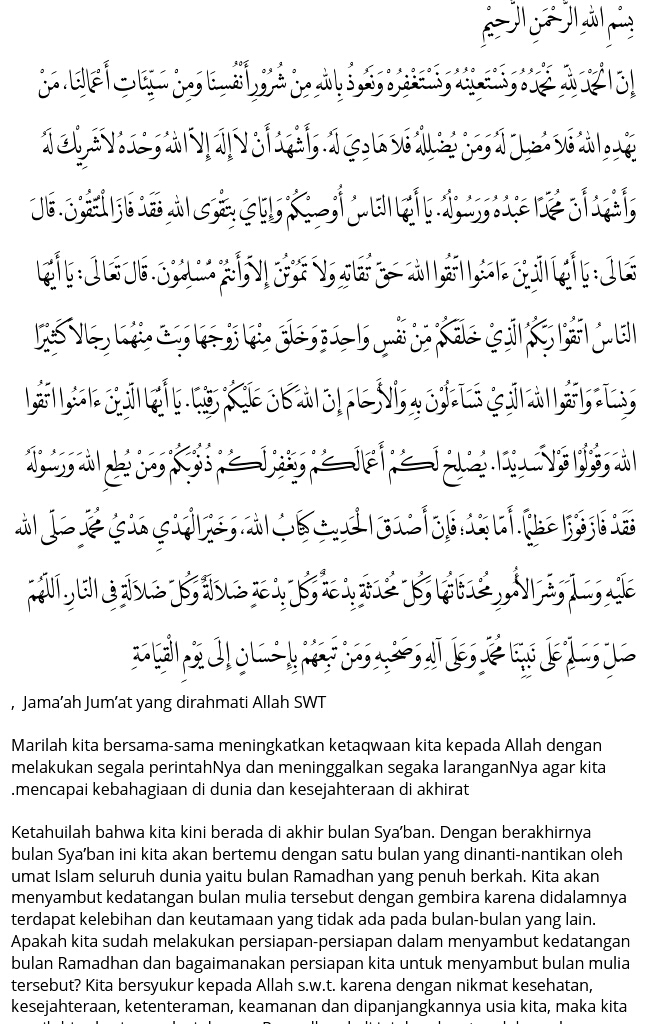 بِسْمِ اللهِ الرَّحْمَنِ الرَّحِيْمِ
إِنّ الْحَمْدَ لِلّهِ نَحْمَدُهُ وَنَسْتَعِيْنُهُ وَنَسْتَغْفِرُهْ وَنَعُوذُ بِاللهِ مِنْ شُرُوْرِ أَنْفُسِنَا وَمِنْ سَيّئَاتِ أَعْمَالِنَا، مَنْ
يَهْدِهِ اللهُ فَلاَ مُضِلّ لَهُ وَمَنْ يُضْلِلْهُ فَلاَ هَادِيَ لَهُ. وَأَشْهَدُ أَنْ لاَ إِلَهَ إِلاّ اللهُ وَحْدَهُ لاَ شَرِيْكَ لَهُ
وَأَشْهَدُ أَنّ مُحَمّدًا عَبْدُهُ وَرَسُوْلُهُ. يَا أَيّهَا النّاسُ أُوْصِيْكُمْ وَإِيّايَ بِتَقْوَى اللهِ فَقَدْ فَازَ الْمُتّقُوْنَ. قَالَ
تَعَالَى: يَا أَيّهَا الّذِيْنَ ءَامَنُوا اتّقُوا اللهَ حَقّ تُقَاتِهِ وَلاَ تَمُوْتُنّ إِلاّ وَأَنتُمْ مّسْلِمُوْنَ. قَالَ تَعَالَى: يَا أَيّهَا
النّاسُ اتّقُوْا رَبّكُمُ الّذِيْ خَلَقَكُمْ مّنْ نَفْسٍ وَاحِدَةٍ وَخَلَقَ مِنْهَا زَوْجَهَا وَبَثّ مِنْهُمَا رِجَالاً كَثِيْرًا
وَنِسَآءً وَاتّقُوا اللهَ الّذِيْ تَسَآءَلُوْنَ بِهِ وَاْلأَرْحَامَ إِنّ اللهَ كَانَ عَلَيْكُمْ رَقِيْبًا. يَا أَيّهَا الّذِيْنَ ءَامَنُوا اتّقُوا
اللهَ وَقُوْلُوْا قَوْلاً سَدِيْدًا. يُصْلِحْ لَكُمْ أَعْمَالَكُمْ وَيَغْفِرْ لَكُمْ ذُنُوْبَكُمْ وَمَنْ يُطِعِ اللهَ وَرَسُوْلَهُ
فَقَدْ فَازَ فَوْزًا عَظِيْمًا. أَمّا بَعْدُ؛ فَإِنّ أَصْدَقَ الْحَدِيثِ كِتَابُ اللهَ، وَخَيْرَ الْهَدْيِ هَدْيُ مُحَمّدٍ صَلّى الله
عَلَيْهِ وَسَلّمَ وَشّرَ الأُمُورِ مُحْدَثَاتُهَا وَكُلّ مُحْدَثَةٍ بِدْعَةٌ وَكُلّ بِدْعَةٍ ضَلاَلَةٌ وَكُلّ ضَلاَلَةٍ فِى النّارِ. اَللّهُمّ
صَلّ وَسَلّمْ عَلَى نَبِيّنَا مُحَمّدٍ وَعَلَى آلِهِ وَصَحْبِهِ وَمَنْ تَبِعَهُمْ بِإِحْسَانٍ إِلَى يَوْمِ الْقِيَامَةِ
, Jama’ah Jum’at yang dirahmati Allah SWT
Marilah kita bersama-sama meningkatkan ketaqwaan kita kepada Allah dengan
melakukan segala perintahNya dan meninggalkan segaka laranganNya agar kita
.mencapai kebahagiaan di dunia dan kesejahteraan di akhirat
Ketahuilah bahwa kita kini berada di akhir bulan Sya’ban. Dengan berakhirnya
bulan Sya’ban ini kita akan bertemu dengan satu bulan yang dinanti-nantikan oleh
umat Islam seluruh dunia yaitu bulan Ramadhan yang penuh berkah. Kita akan
menyambut kedatangan bulan mulia tersebut dengan gembira karena didalamnya
terdapat kelebihan dan keutamaan yang tidak ada pada bulan-bulan yang lain.
Apakah kita sudah melakukan persiapan-persiapan dalam menyambut kedatangan
bulan Ramadhan dan bagaimanakan persiapan kita untuk menyambut bulan mulia
tersebut? Kita bersyukur kepada Allah s.w.t. karena dengan nikmat kesehatan,
kesejahteraan, ketenteraman, keamanan dan dipanjangkannya usia kita, maka kita